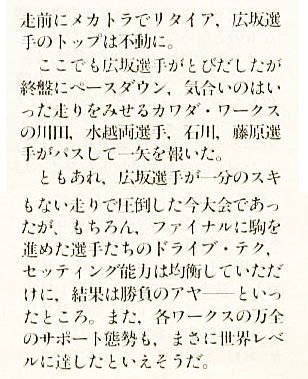 走前にメカトラでリタイア、広坂選
手のトップは不動に。
　ここでも広坂選手がとびだしたが
終盤にペースダウン、気合いのはい
った走りをみせるカワダ・ワークス
の川田、水越両選手、石川、藤原選
手がパスして一矢を報いた。
　ともあれ、広坂選手が一分のスキ
もない走りで圧倒した今大会であっ
たが、もちろん、ファイナルに駒を
進めた選手たちのドライブ・テク、
セッティング能力は均衡していただ
けに、結果は勝負のアヤ——といっ
たところ。また、各ワークスの万全
のサポート態勢も、まさに世界レベ
ルに達したといえそうだ。